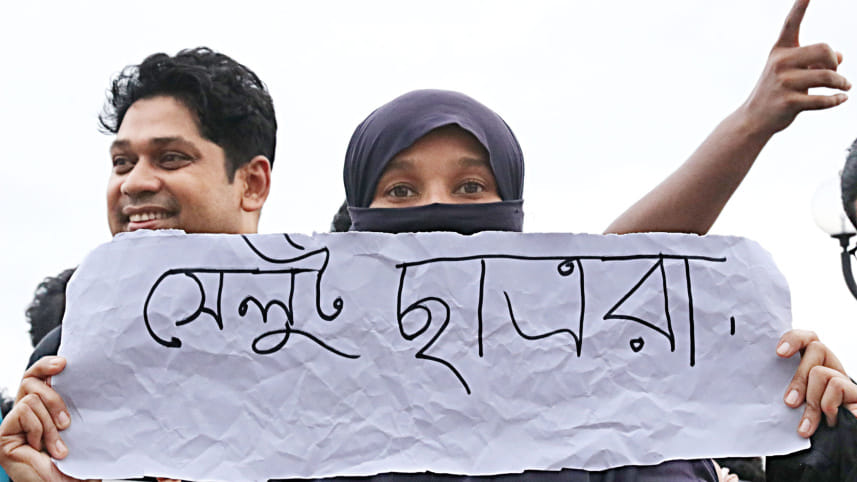 সেলুট ছাত্ররা.